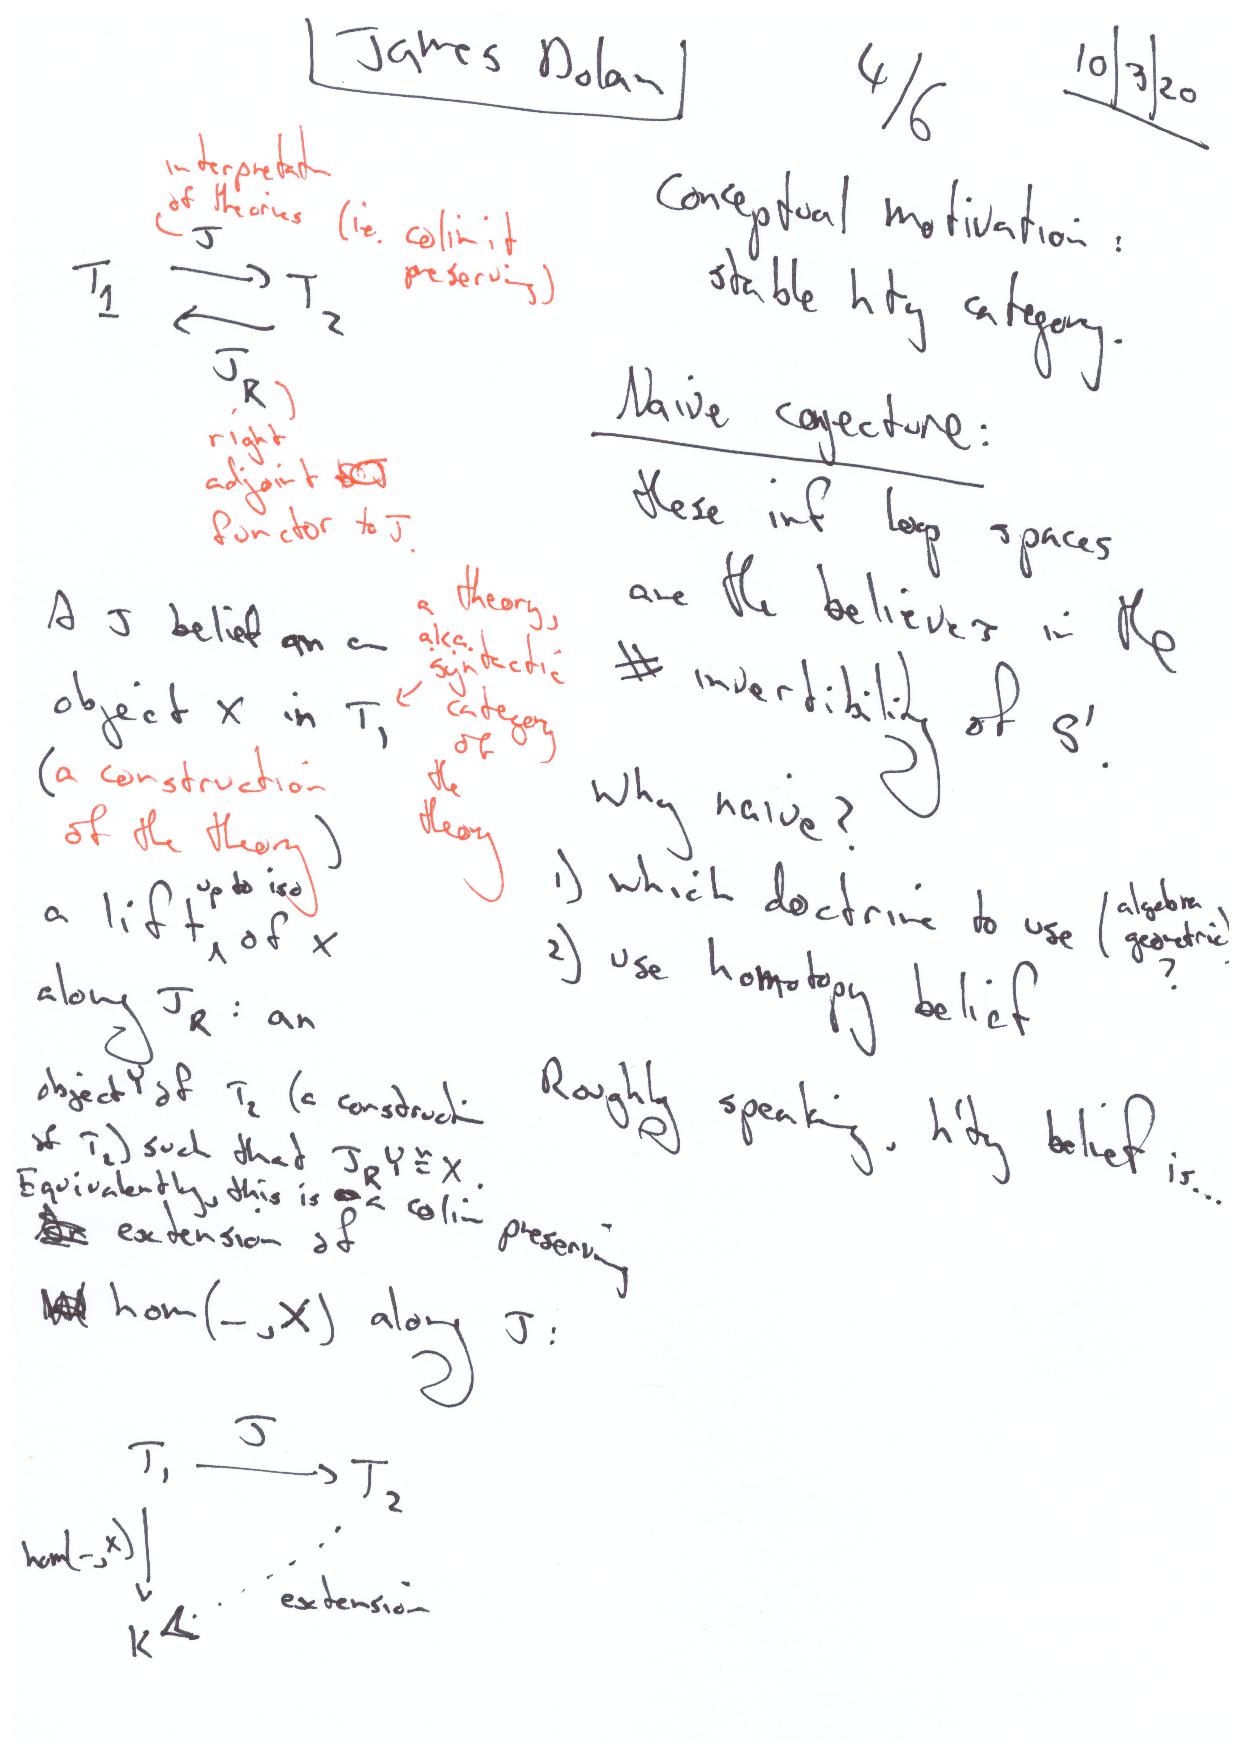 James Dolan
4/6
10/3/20
interpretatn
of theories (i.e. colimit
preserving)
J
T1 → T2
←
JR
right
adjoint
functor to J.
A J belief on an
object X in T1
a theory,
aka.
syntactic
category
of
the
theory
(a construction
of the theory)
a lift up to iso of X
along JR : an
object Y of T2 (a constructi
of T2) such that JR Y ≅ X.
Equivalently, this is a colim preserving
extension of
hom(-, X) along J:
J
T1 → T2
hom(-, X)
K
extension
Conceptual motivation:
stable hty category.
Naive conjecture:
these inf loop spaces
are the believers in the
invertibility of S¹.
Why naive?
1) which doctrine to use (algebra
geometric
?
2) use homotopy belief
Roughly speaking, h'ty belief is...